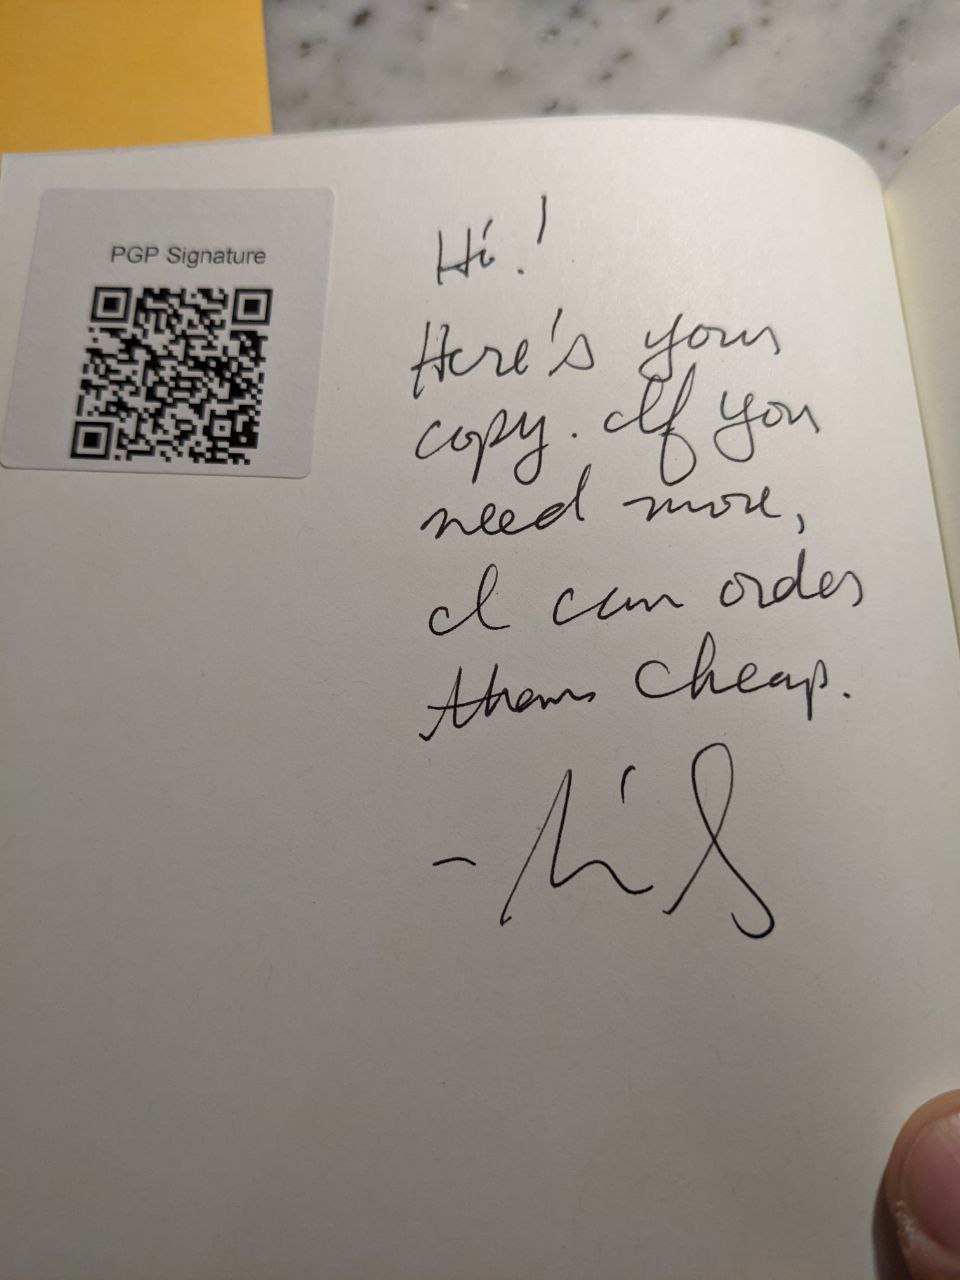 PGP Signature
Hi!
Here's your
copy. If you
need more,
I can order
them cheap.